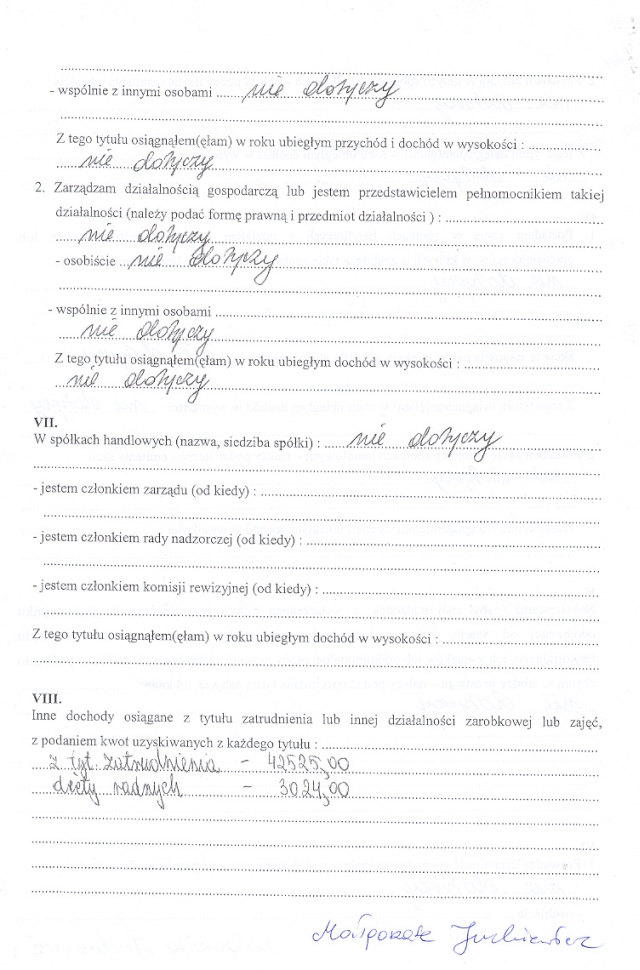 - wspólnie z innymi osobami ...... nie dotyczy
Z tego tytułu osiągnąłem(ęłam) w roku ubiegłym przychód i dochód w wysokości : ..................
nie dotyczy
2. Zarządzam działalnością gospodarczą lub jestem przedstawicielem pełnomocnikiem takiej
działalności (należy podać formę prawną i przedmiot działalności ) : ..................
nie dotyczy
- osobiście .. nie dotyczy
- wspólnie z innymi osobami ..................
nie dotyczy
Z tego tytułu osiągnąłem(ęłam) w roku ubiegłym dochód w wysokości : ..................
nie dotyczy
VII.
W spółkach handlowych (nazwa, siedziba spółki) : ...... nie dotyczy
- jestem członkiem zarządu (od kiedy) : ..................
- jestem członkiem rady nadzorczej (od kiedy) : ..................
- jestem członkiem komisji rewizyjnej (od kiedy) : ..................
Z tego tytułu osiągnąłem(ęłam) w roku ubiegłym dochód w wysokości : ..................
VIII.
Inne dochody osiągane z tytułu zatrudnienia lub innej działalności zarobkowej lub zajęć,
z podaniem kwot uzyskiwanych z każdego tytułu : ..................
z tyt. zatrudnienia - 42525,00
diety radnych - 3024,00
Małgorzata